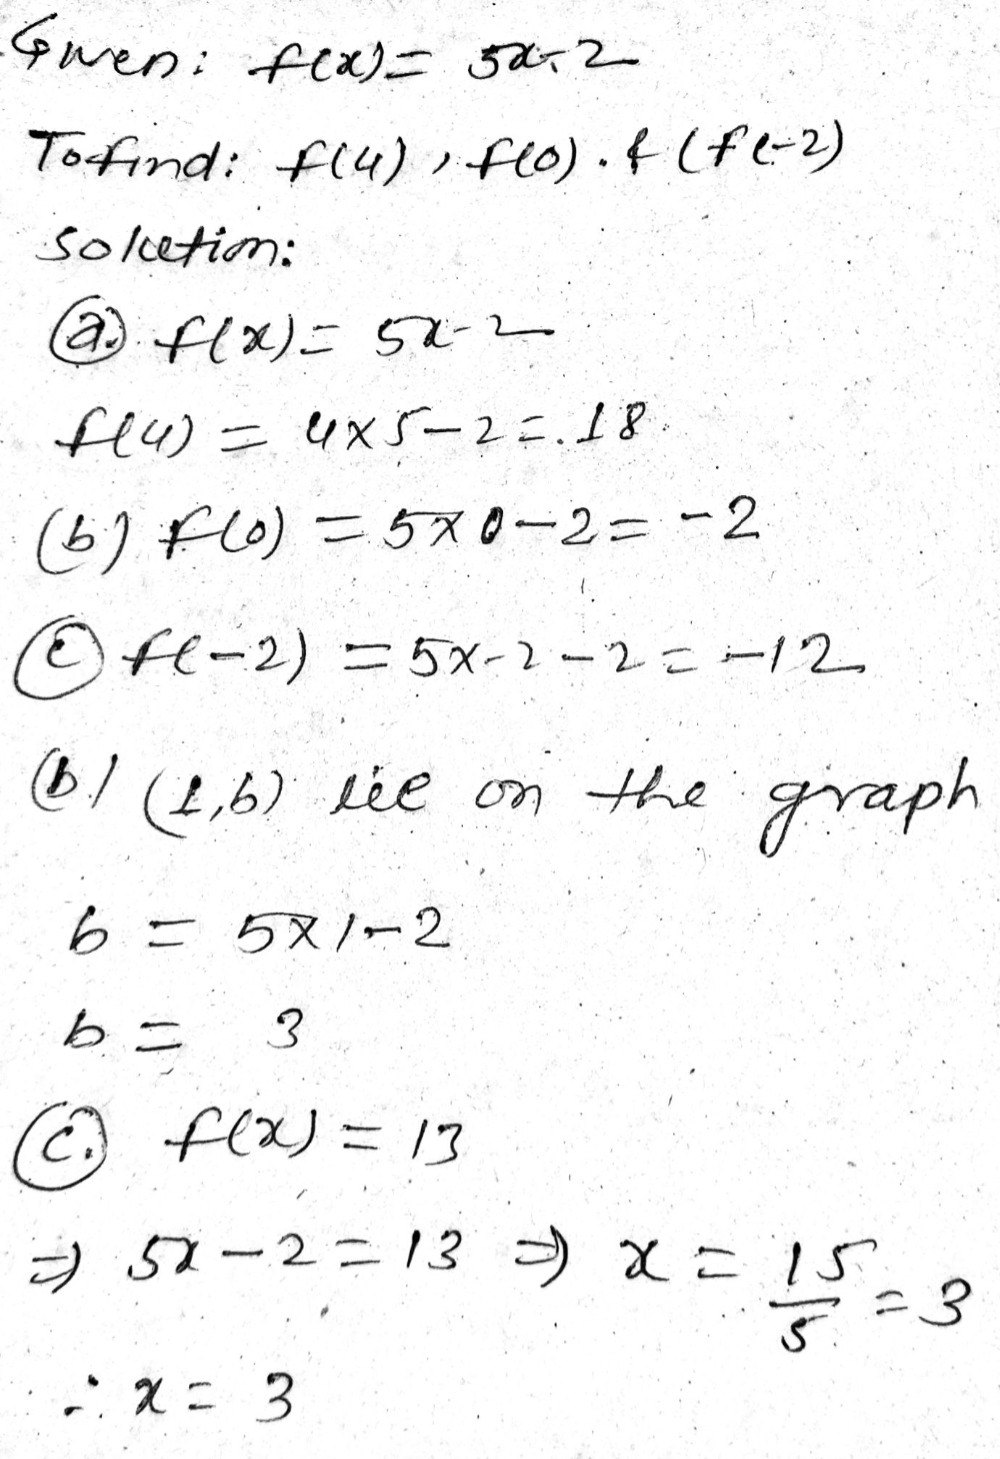 Given: f(x) = 5x-2
To find: f(4), f(0). & (f(-2)
Solution:
(a.) f(x) = 5x-2
f(4) = 4x5-2=.18
(b) f(0) = 5x0-2= -2
(c) f(-2) = 5x-2-2=-12
(b) (1,b) lie on the graph
b = 5x1-2
b = 3
(c.) f(x) = 13
=> 5x-2=13 => x = 15/5 = 3
∴ x = 3